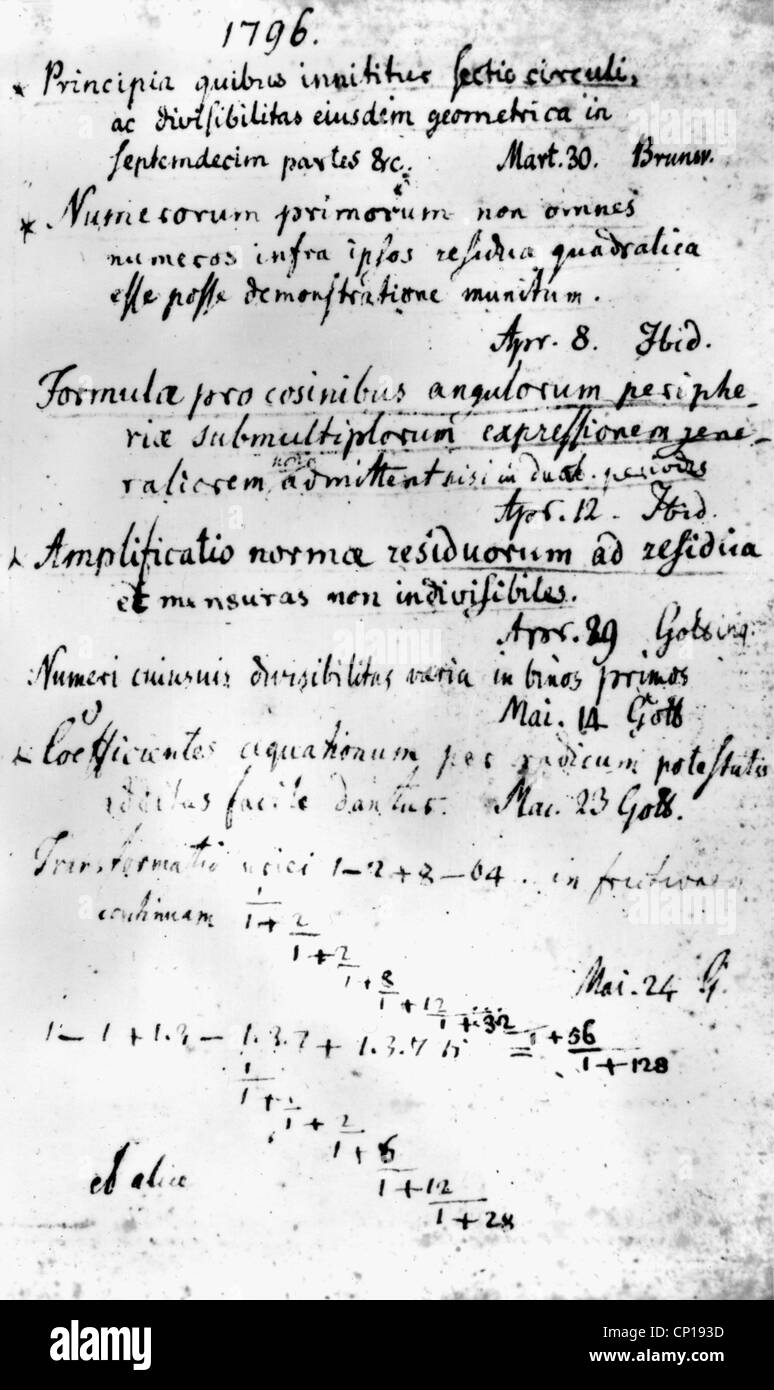 1796.
* Principia quibus innititur sectio circuli,
ac divisibilitas eiusdem geometrica in
septemdecim partes &c. Mart. 30. Brunsv.
* Numerorum primorum non omnes
numeros infra ipsos residua quadratica
esse posse demonstratione munitum.
Apr. 8. Ibid.
Formulae pro cosinibus angulorum periphe-
riae submultiplorum expressionem gene-
raliorem non admittent nisi in duab. periodis
Apr. 12. Ibid.
* Amplificatio normae residuorum ad residua
et mensuras non indivisibiles.
Apr. 29 Gotting.
Numeri cuiusvis divisibilitas varia in binos primos
Mai. 14 Gott
* Coefficientes aequationum per radicum potestates
additas facile dantur. Mai. 23 Gott.
Transformatio seriei 1-2+8-64.. in fractionem
continuam 1
1+2
1+2
1+8
1+12
1+32
1+56
1+128
Mai. 24 G.
1-1+1.3-1.3.7+1.3.7.15 =
1
1+1
1+2
1+6
1+12
1+28
et aliae
alamy
alamy
Image ID: CP193D
www.alamy.com